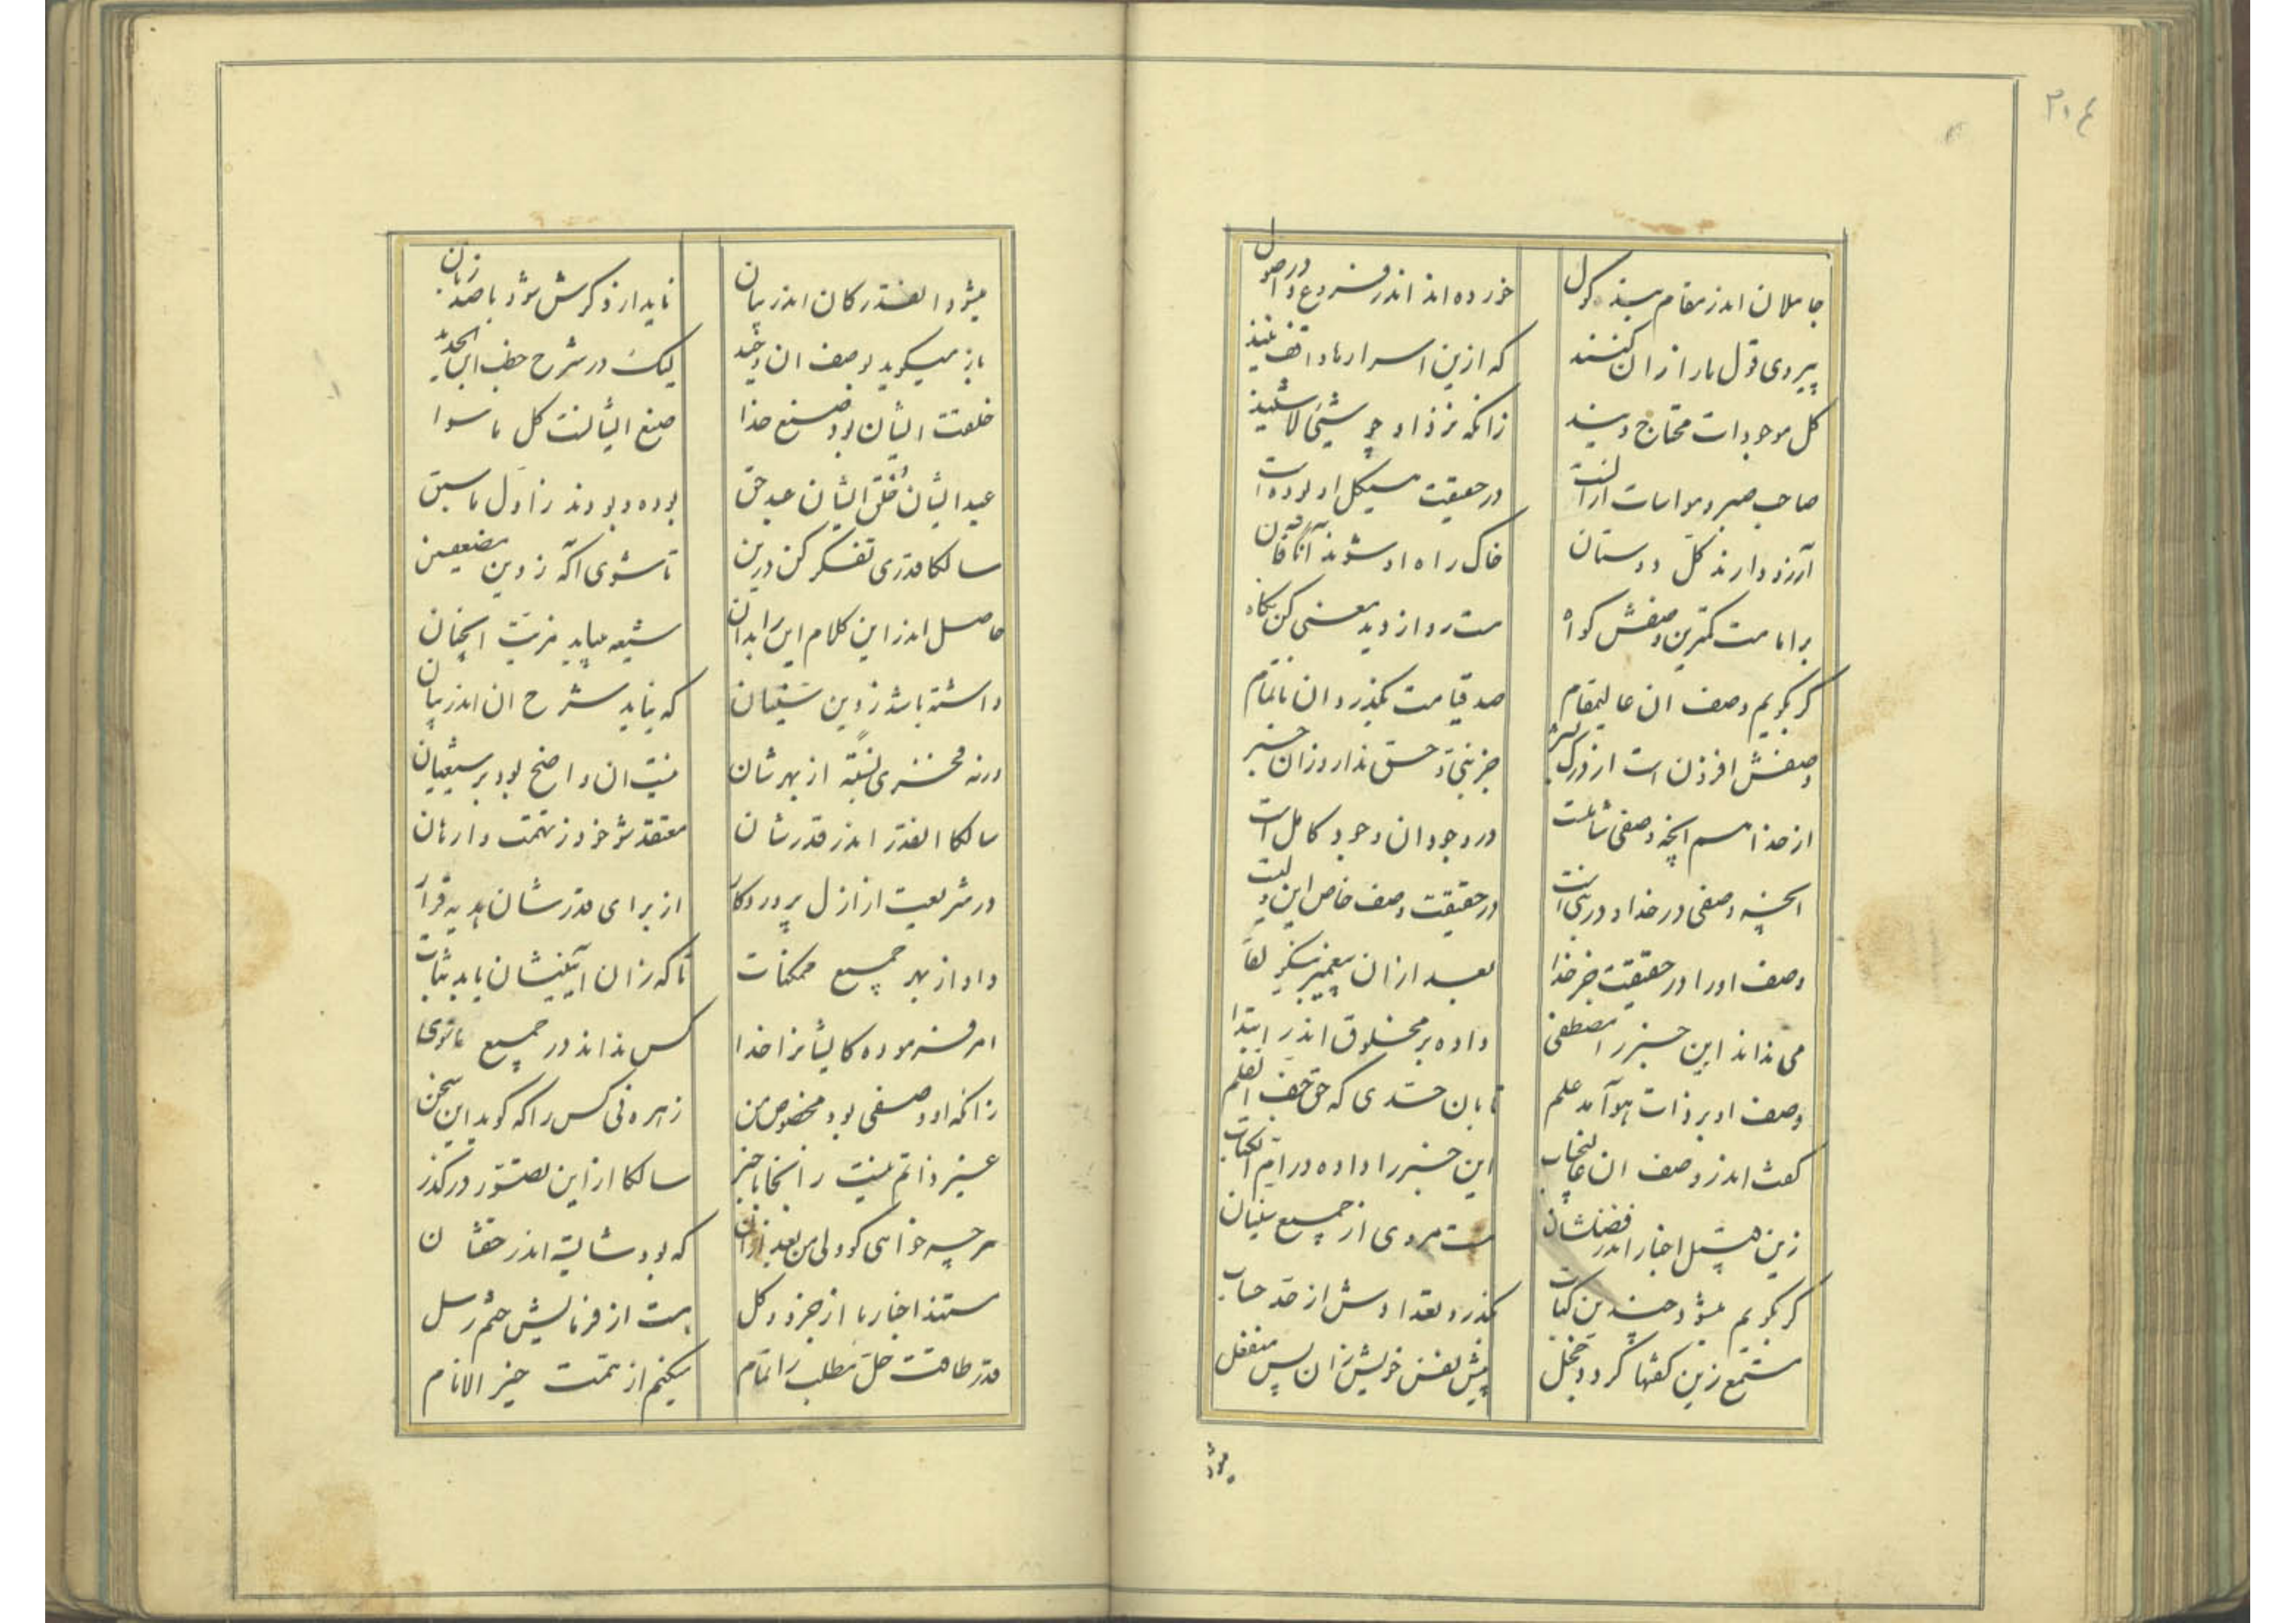 ۳۰۴
جاهلان اندر مقام بند کول
خورده‌اند اندر فروع و در اصول
پیروی قول ما را زان کنند
که ازین اسرارها واقف نیند
کل موجودات محتاج ویند
زانکه نزد او چو شیئی لا شیئند
صاحب صبر و مواسات
در حقیقت هیکل او بوده است
آرزو دارند کل دوستان
خاک راه او شوند
بر امامت کمترین وصفش کواه
هست رو از دید معنی کن نکاه
کر بکویم وصف ان عالیمقام
صد قیامت بکذرد ان ناتمام
وصفش افزون است از درک بشر
جز نبی و حق ندارد زان خبر
از خدا هم انچه وصفی شاملست
در وجود ان وجود کامل است
انچه وصفی در خدا و در نبی است
در حقیقت وصف خاص این ولیست
وصف او را در حقیقت جز خدا
بعد ازان پیغمبر نیکو لقا
می نداند این خبر را مصطفی
داده بر مخلوق اندر ابتدا
وصف او بر ذات هو آمد علم
تا بان حدی که حق جف القلم
کفت اندر وصف ان عالیجناب
این خبر را داده در ام الکتاب
زین قبیل اخبار اندر فضلشان
هست مروی از جمیع سنیان
کر بکویم میشود چندین کتاب
بکذرد تعدادش از حد حساب
مستمع زین کفتها کردد خجل
پیش نفس خویش زان پس منفعل
میشود
میشود انقدر کان اندر بیان
ناید ار ذکرش شود با صد زبان
باز میکوید بوصف ان وحید
لیک در شرح خطب ابن الحدید
خلقت ایشان بود صنع خدا
صنع ایشانست کل ما سوا
عبد ایشان خلق ایشان عبد حق
بوده و بودند ز اول ما سبق
سالکا قدری تفکر کن درین
تا شوی آکه ز دین
حاصل اندر این کلام این را بدان
شیعه میباید مزیت انچنان
داشته باشد ز دین سنیان
که نیاید شرح ان اندر بیان
ورنه فخری نسبة از بهرشان
نیست ان واضح بود بر شیعیان
سالکا انقدر اندر قدرشان
معتقد شو خود ز تهمت وارهان
در شریعت از ازل پروردکار
از برای قدرشان قرار
داد از بهر جمیع ممکنات
تا که زان آیینشان یابد ثبات
امر فرموده کایشانرا خدا
کس نداند در جمیع ماسوی
زانکه او وصفی بود مخصوص من
زهره نی کس را که کوید این سخن
غیر ذاتم نیست زانجا با خبر
سالکا از این تصور در کذر
هر چه خواهی کو ولی من بعد ازان
که بود شایسته اندر حقشان
مستند اخبار ما از جزو و کل
هست از فرمایش ختم رسل
قدر طاقت حل مطلب را تمام
میکنم از همت خیر الانام